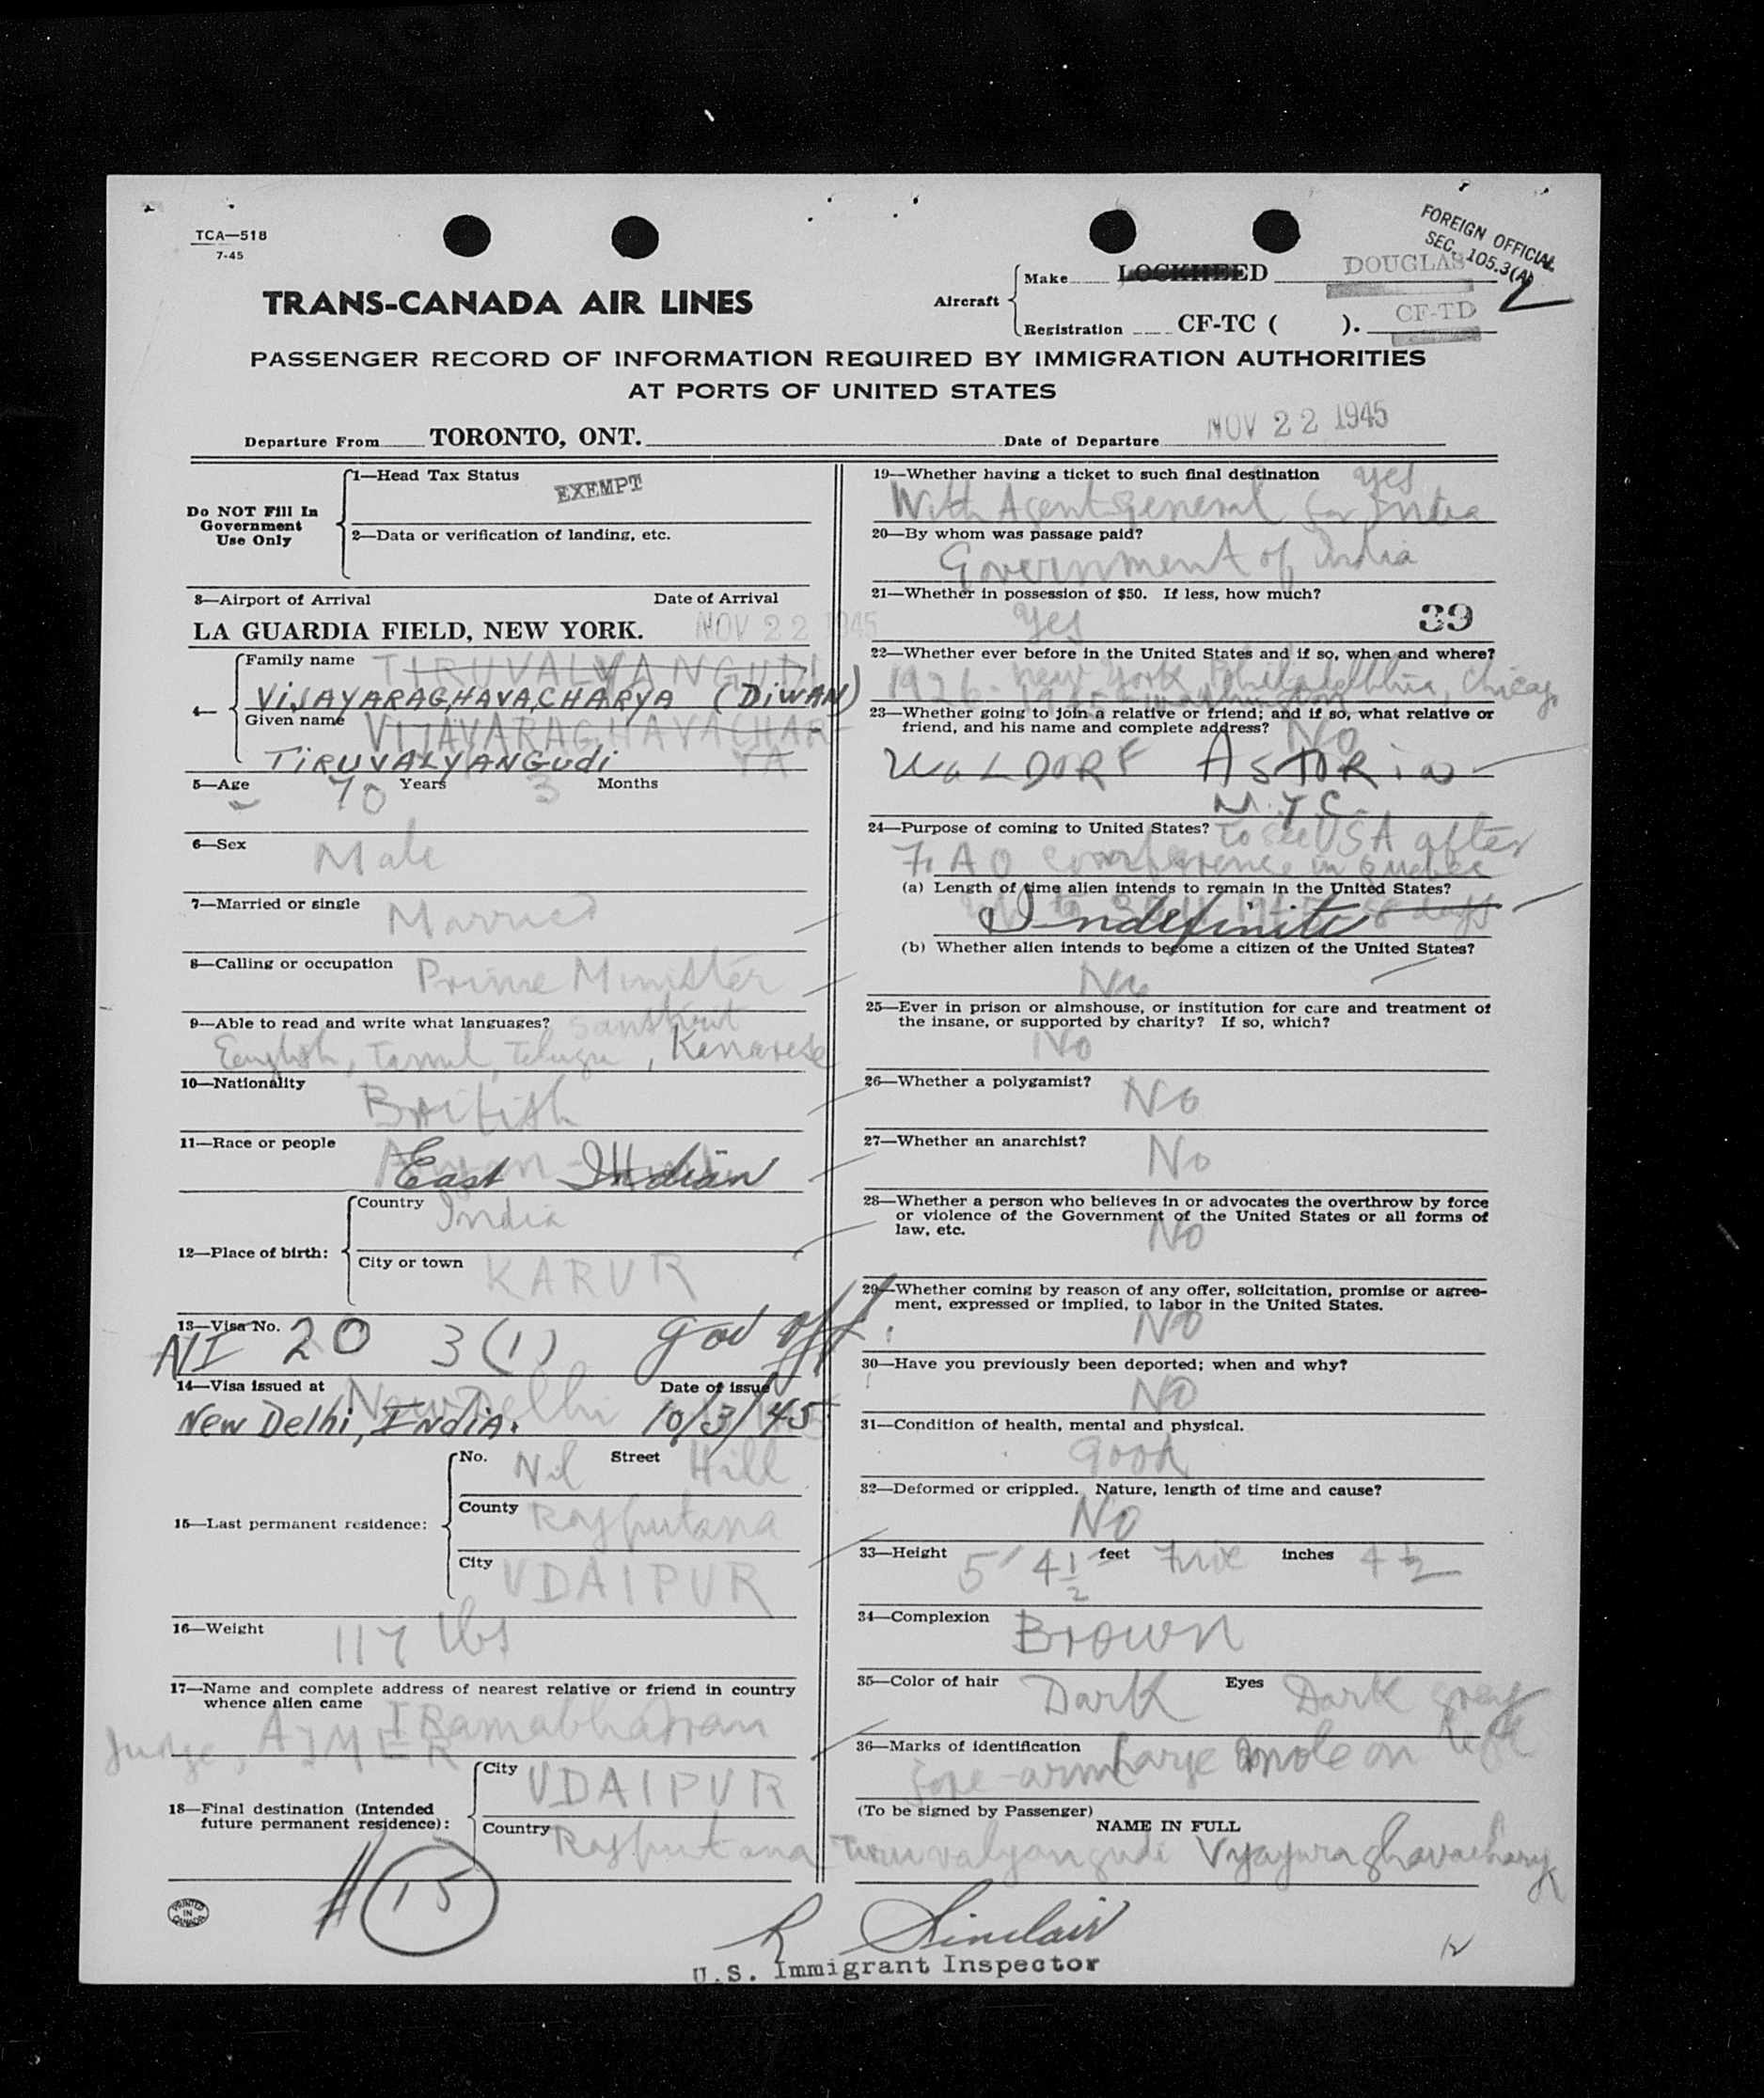 TCA—518
7-45
FOREIGN OFFICIAL
SEC. 105.3(A)
TRANS-CANADA AIR LINES
Aircraft
Make LOCKHEED DOUGLAS
Registration CF-TC ( ). CF-TD
PASSENGER RECORD OF INFORMATION REQUIRED BY IMMIGRATION AUTHORITIES
AT PORTS OF UNITED STATES
Departure From TORONTO, ONT. Date of Departure NOV 22 1945
Do NOT Fill In
Government
Use Only
1—Head Tax Status EXEMPT
2—Data or verification of landing, etc.
3—Airport of Arrival Date of Arrival
LA GUARDIA FIELD, NEW YORK. NOV 22 1945
4—
Family name TIRUVALYANGUDI
VIJAYARAGHAVACHARYA (DIWAN)
Given name VIJAYARAGHAVACHAR
TIRUVALYANGUDI YA
5—Age 70 Years 3 Months
6—Sex Male
7—Married or single Married
8—Calling or occupation Prime Minister
9—Able to read and write what languages? Sanskrit
English, Tamil, Telugu, Kanarese
10—Nationality British
11—Race or people East Indian
12—Place of birth:
Country India
City or town KARUR
13—Visa No.
NI 20 3(1) gov off
14—Visa issued at New Delhi Date of issue
New Delhi, India. 10/3/45
15—Last permanent residence:
No. Nil Street Hill
County Rajputana
City UDAIPUR
16—Weight 117 lbs
17—Name and complete address of nearest relative or friend in country
whence alien came
Judge, AJMER
18—Final destination (Intended
future permanent residence):
City UDAIPUR
Country Rajputana
#15
PRINTED
IN
CANADA
19—Whether having a ticket to such final destination yes
With Agent General for India
20—By whom was passage paid?
Government of India
21—Whether in possession of $50. If less, how much?
yes 39
22—Whether ever before in the United States and if so, when and where?
1926- New York Philadelphia, Chicago
1945 Washington
23—Whether going to join a relative or friend; and if so, what relative or
friend, and his name and complete address? No
WALDORF ASTORIA
N.Y.C.
24—Purpose of coming to United States? To see USA after
F.A O conference in Quebec
(a) Length of time alien intends to remain in the United States?
Indefinite days
(b) Whether alien intends to become a citizen of the United States?
No
25—Ever in prison or almshouse, or institution for care and treatment of
the insane, or supported by charity? If so, which?
No
26—Whether a polygamist? No
27—Whether an anarchist? No
28—Whether a person who believes in or advocates the overthrow by force
or violence of the Government of the United States or all forms of
law, etc. No
29—Whether coming by reason of any offer, solicitation, promise or agree-
ment, expressed or implied, to labor in the United States.
NO
30—Have you previously been deported; when and why?
NO
31—Condition of health, mental and physical.
good
32—Deformed or crippled. Nature, length of time and cause?
NO
33—Height 5' 4½ feet Five inches 4½
34—Complexion Brown
35—Color of hair Dark Eyes Dark grey
36—Marks of identification Large mole on left
fore-arm
(To be signed by Passenger)
NAME IN FULL
Tiruvalyangudi Vijayaraghavacharya
R Sinclair
U.S. Immigrant Inspector